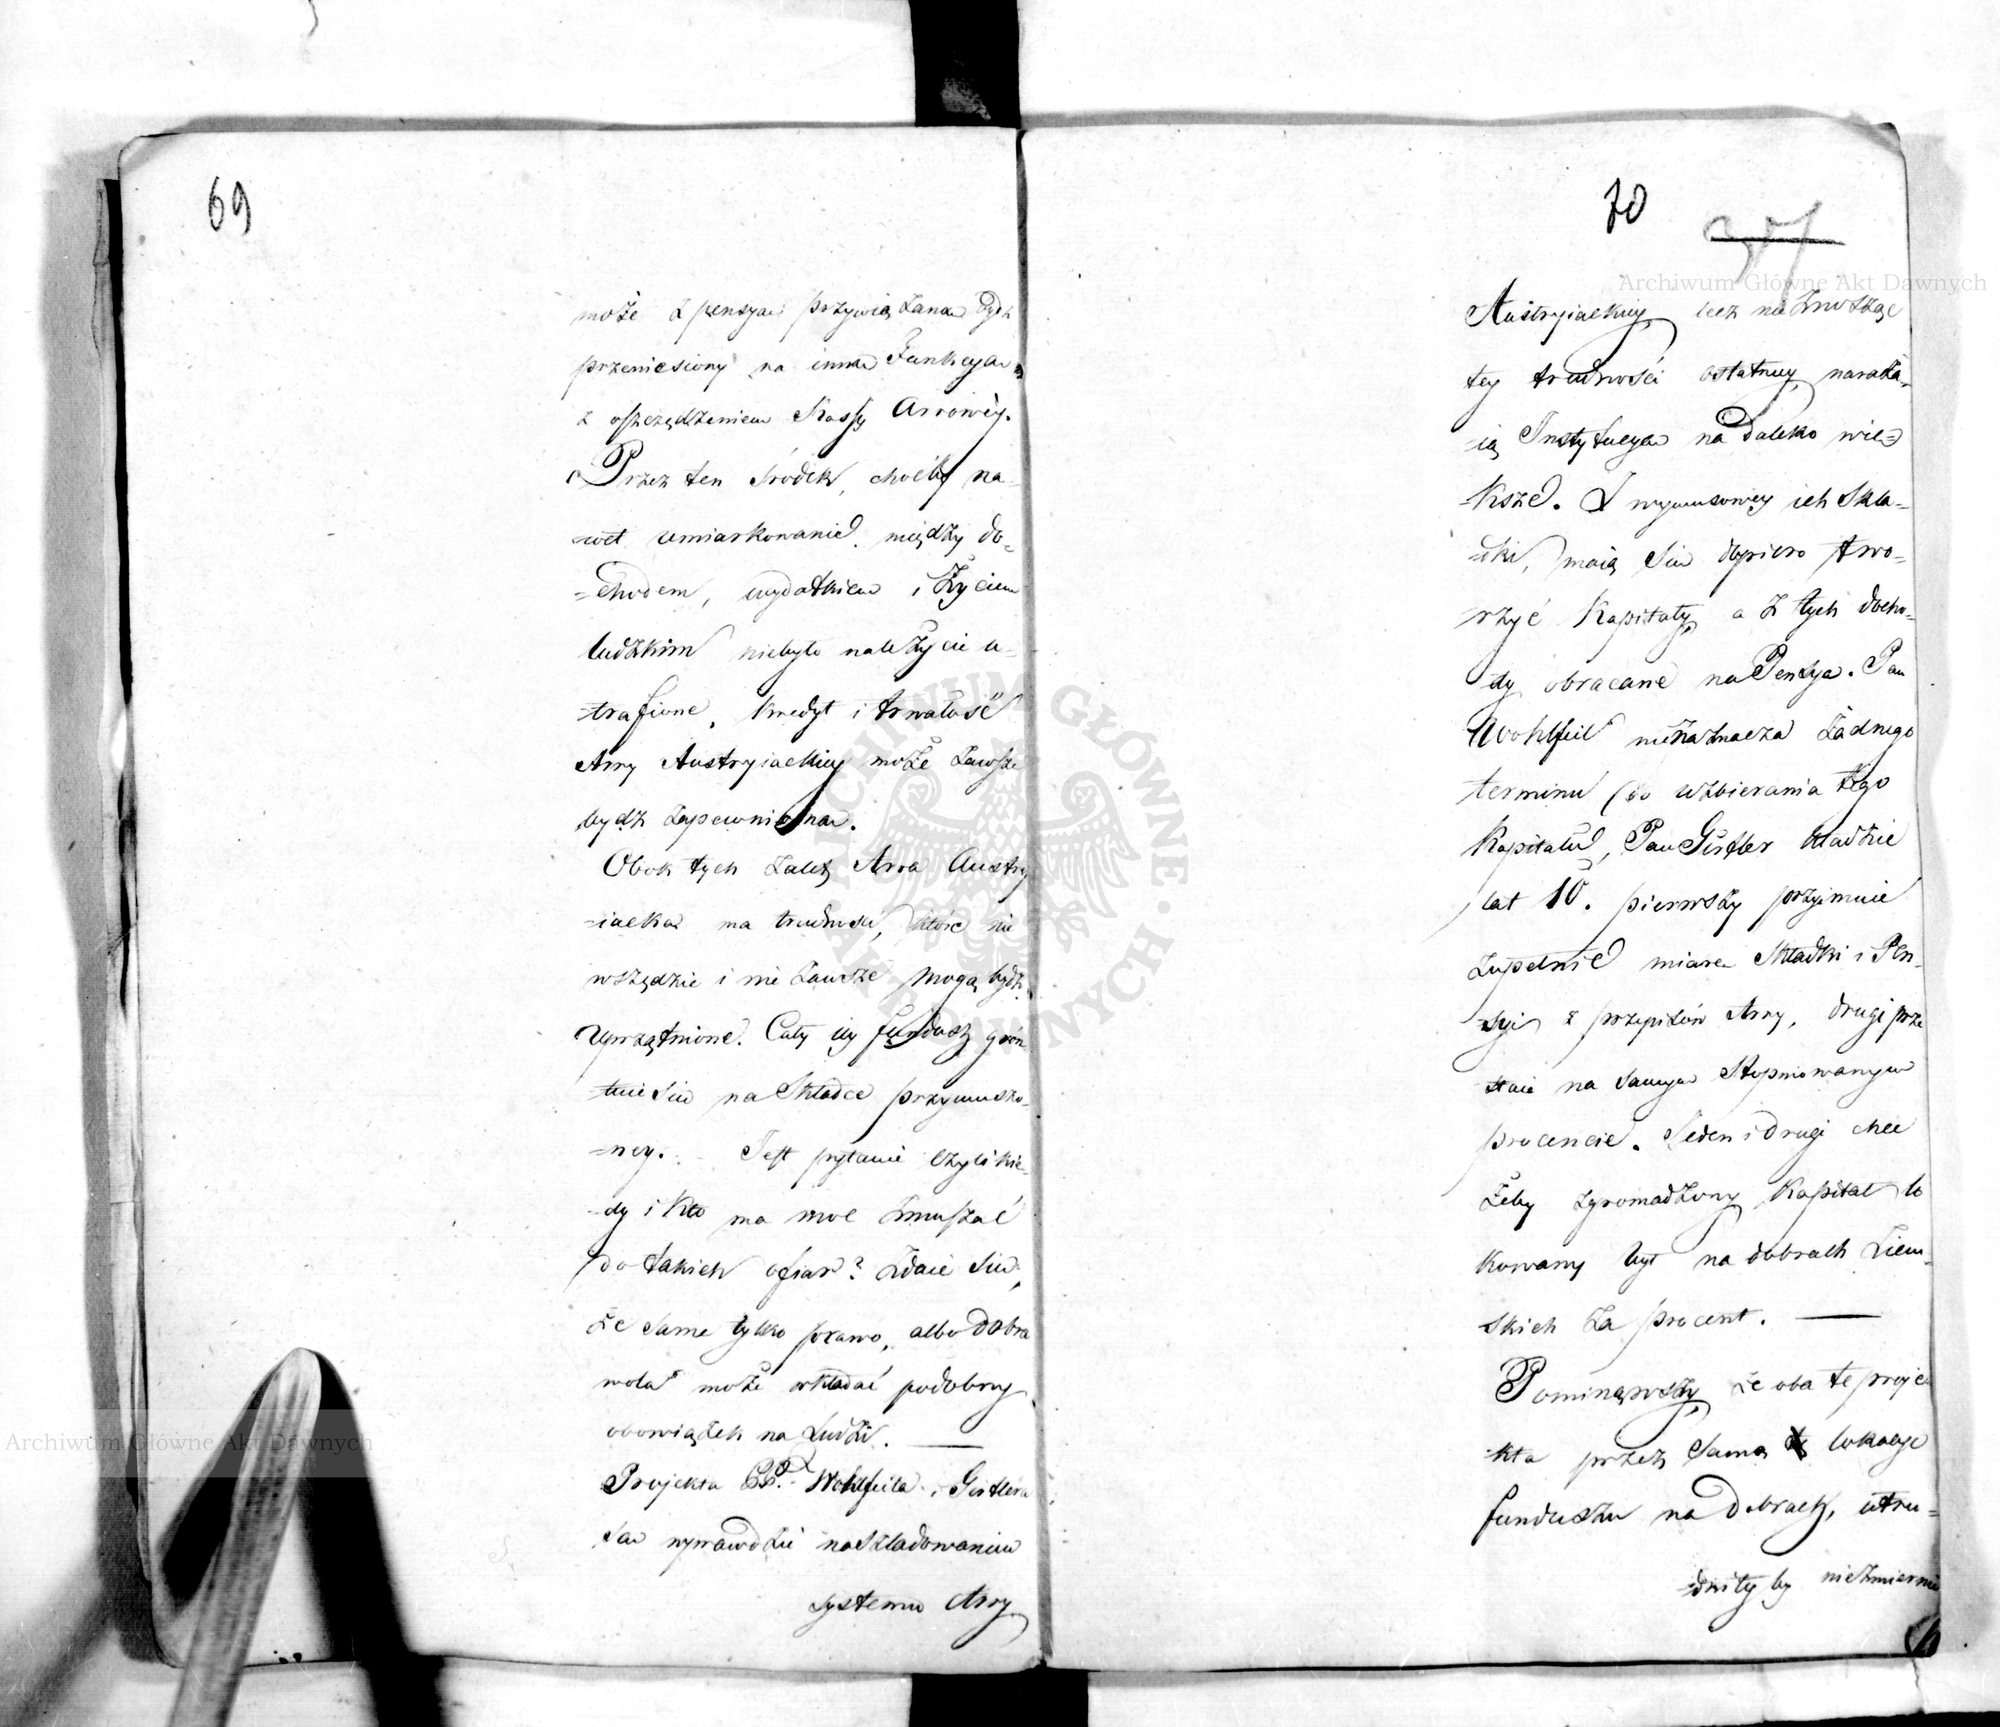 69
może z pensyą przywiązaną bydź
przeniesiony na inną Funkcyą
z oszczędzeniem Kassy Arrowey.
Przez ten środek, choćby na-
-wet umiarkowanie między do=
=chodem, wydatkiem i Życiem
ludzkim niebyło należycie u-
-trafione, kredyt i trwałość
Arry Austryiackiey może zawsze
bydź zapewnioną.
Obok tych zalet, Arra Austry
-iacka ma trudności, które nie
wszędzie i nie zawsze mogą bydź
uprzątnione. Cały iey fundusz grun
-tuie sie na Składce przymuszo-
-ney. Jest pytanie czyli kie-
-dy i kto ma moc zmuszać
do takich ofiar? Zdaie sie,
że same tylko prawo, albo dobra
wola może wkładać podobny
obowiązek na Ludzi. —
Projekta PP. Wohlfeila i Gistlera
są wprawdzie naśladowaniem
systemu Arry
70
37
Austryiackiey, lecz nie znosząc
tey trudności ostatniey, naraża-
ią Instytucyą na daleko wię=
-ksze. Z wymusoney ich Skła-
-dki, maią sie dopiero two=
rzyć Kapitały, a z tych docho-
dy obracane na Pensye. Pan
Wohlfeil nienaznacza żadnego
terminu do wzbierania tego
Kapitału, Pan Gistler kładzie
lat 10. pierwszy przyjmuie
zupełnie miarę Składki i Pen-
-syi z przepisów Arry, drugi prze
staie na samym Stopniowanym
procencie. Jeden i drugi chce
żeby zgromadzony Kapitał lo
kowany był na dobrach Ziem-
skich za procent. —
Pominąwszy że oba te proje
-kta przez samą lokacyę
funduszu na Dobrach, utru=
-dniły by niezmiernie
Archiwum Główne Akt Dawnych
Archiwum Główne Akt Dawnych
ARCHIWUM GŁÓWNE AKT DAWNYCH